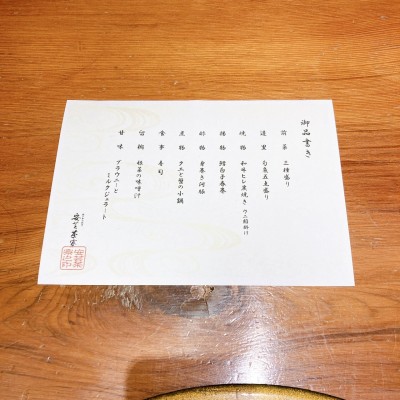 御品書き
前菜　三種盛り
造里　白魚五点盛り
焼物　和牛ヒレ炭焼き ウニ餡掛け
揚物　鱈白子春巻
酢物　身巻き河豚
煮物　クエと蟹の小鍋
食事　寿司
留椀　根菜の味噌汁
甘味　ブラウニーと
ミルクジェラート